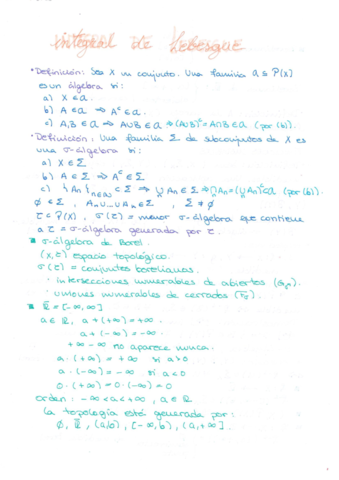 integral de Lebesgue
• Definición: Sea X un conjunto. Una familia a ⊆ P(X)
es un álgebra si:
a) X ∈ a.
b) A ∈ a ⇒ Aᶜ ∈ a.
c) A,B ∈ a ⇒ A∪B ∈ a ⇒ (A∪B)ᶜ = A∩B ∈ a (por (b)).
• Definición: Una familia Σ de subconjuntos de X es
una σ-álgebra si:
a) X ∈ Σ
b) A ∈ Σ ⇒ Aᶜ ∈ Σ
c) {An}n∈ℕ ⊂ Σ ⇒ ⋃ An ∈ Σ ⇒ ⋂ An = (⋃ An)ᶜ ∈ a (por (b)).
∅ ∈ Σ, A₁∪...∪An ∈ Σ, Σ ≠ ∅
τ ⊂ P(X), σ(τ) = menor σ-álgebra que contiene
a τ = σ-álgebra generada por τ.
σ-álgebra de Borel
(X,τ) espacio topológico.
σ(τ) = conjuntos borelianos.
· intersecciones numerables de abiertos
· uniones numerables de cerrados
ℝ̄ = [-∞, ∞]
a ∈ ℝ, a + (+∞) = +∞
a + (-∞) = -∞
+∞ -∞ no aparece nunca.
a · (+∞) = +∞ si a>0
a · (-∞) = -∞ si a<0
0 · (+∞) = 0 · (-∞) = 0
orden: -∞ < a < +∞, a ∈ ℝ
la topología está generada por:
∅, ℝ̄, (a,b), [-∞,b), (a,+∞].